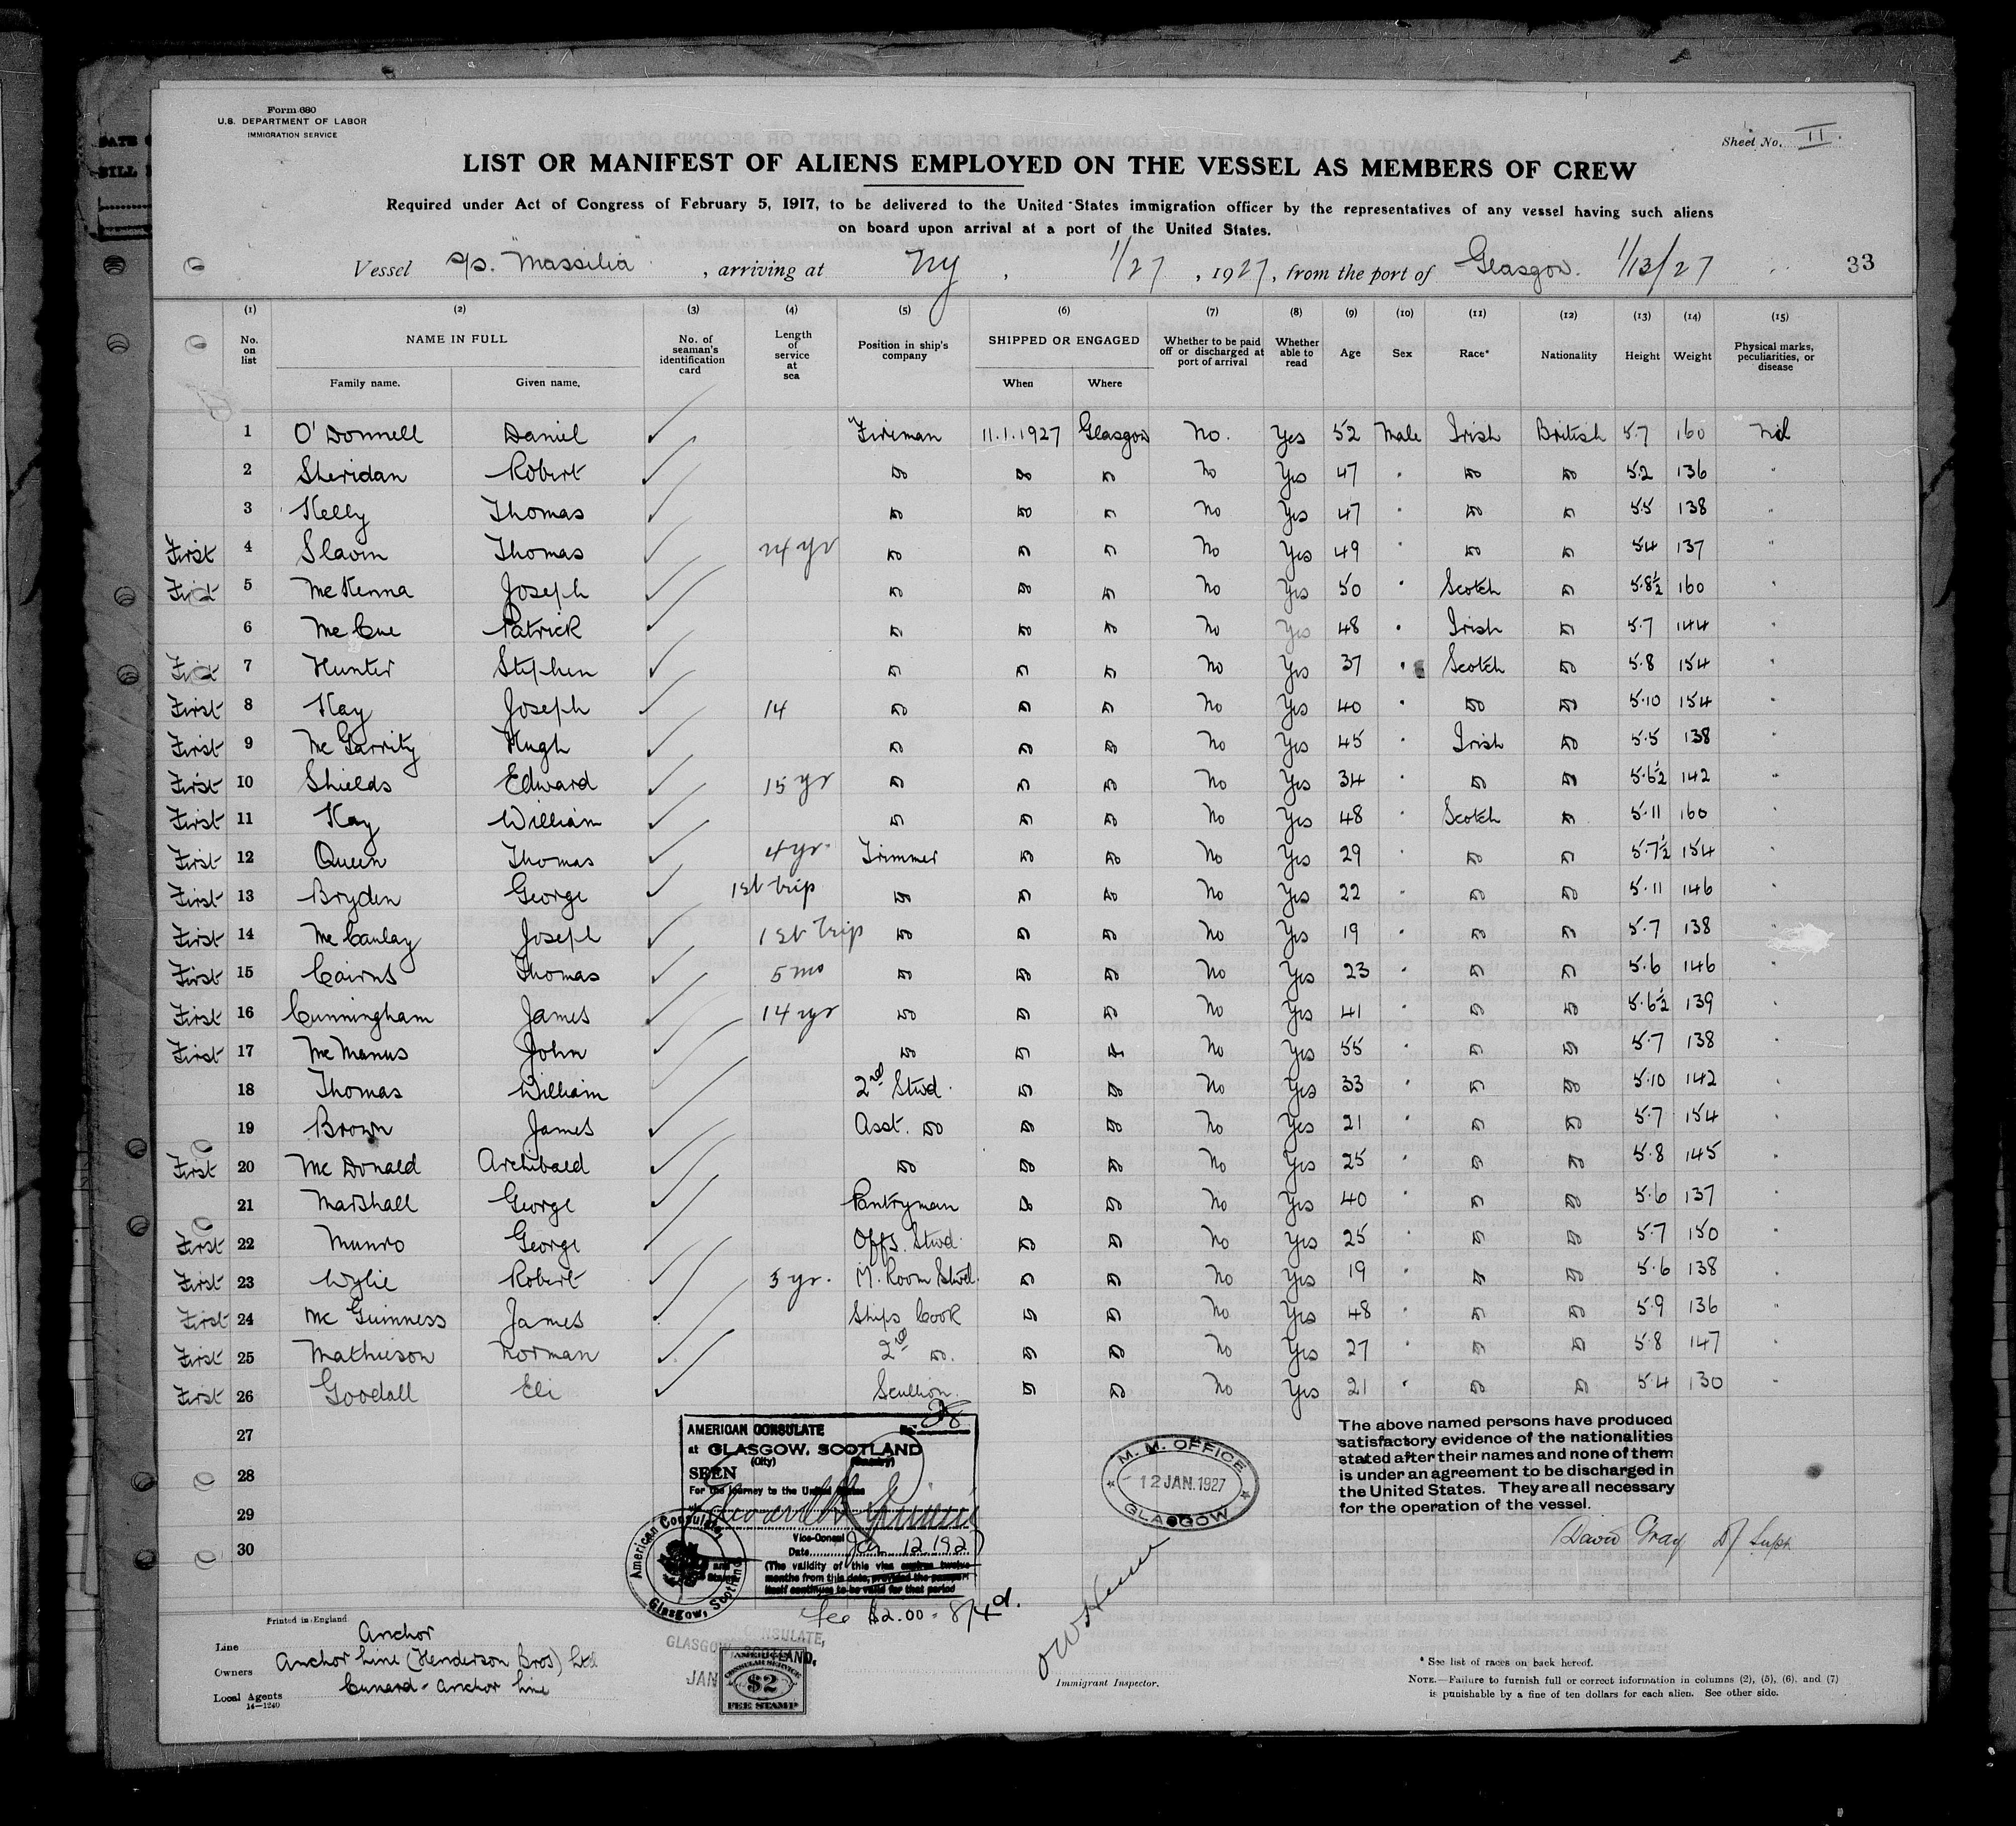 Form 680
U.S. DEPARTMENT OF LABOR
IMMIGRATION SERVICE
Sheet No. II.
LIST OR MANIFEST OF ALIENS EMPLOYED ON THE VESSEL AS MEMBERS OF CREW
Required under Act of Congress of February 5, 1917, to be delivered to the United States immigration officer by the representatives of any vessel having such aliens
on board upon arrival at a port of the United States.
Vessel s/s. "Massilia", arriving at NY, 1/27, 1927, from the port of Glasgow. 1/13/27 33
(1) No. on list (2) NAME IN FULL Family name. Given name. (3) No. of seaman's identification card (4) Length of service at sea (5) Position in ship's company (6) SHIPPED OR ENGAGED When Where (7) Whether to be paid off or discharged at port of arrival (8) Whether able to read (9) Age (10) Sex (11) Race* (12) Nationality (13) Height (14) Weight (15) Physical marks, peculiarities, or disease
1 O'Donnell Daniel Fireman 11.1.1927 Glasgow No. Yes 52 Male Irish British 5.7 160 Nil
2 Sheridan Robert Do Do Do No Yes 47 " Do Do 5.2 136 "
3 Kelly Thomas Do Do Do No Yes 47 " Do Do 5.5 138 "
First 4 Slavin Thomas 24 yr Do Do Do No Yes 49 " Do Do 5.4 137 "
First 5 McKenna Joseph Do Do Do No Yes 50 " Scotch Do 5.8½ 160 "
6 McCue Patrick Do Do Do No Yes 48 " Irish Do 5.7 144 "
First 7 Hunter Stephen Do Do Do No Yes 37 " Scotch Do 5.8 154 "
First 8 Kay Joseph 14 Do Do Do No Yes 40 " Do Do 5.10 154 "
First 9 McGarrity Hugh Do Do Do No Yes 45 " Irish Do 5.5 138 "
First 10 Shields Edward 15 yr Do Do Do No Yes 34 " Do Do 5.6½ 142 "
First 11 Kay William Do Do Do No Yes 48 " Scotch Do 5.11 160 "
First 12 Queen Thomas 4 yr. Trimmer Do Do No Yes 29 " Do Do 5.7½ 154 "
First 13 Bryden George 1st trip Do Do Do No Yes 22 " Do Do 5.11 146 "
First 14 McCaulay Joseph 1st Trip Do Do Do No Yes 19 " Do Do 5.7 138
First 15 Cairns Thomas 5 mo Do Do Do No Yes 23 " Do Do 5.6 146 "
First 16 Cunningham James 14 yr Do Do Do No Yes 41 " Do Do 5.6½ 139 "
First 17 McManus John Do Do Do No Yes 55 " Do Do 5.7 138 "
18 Thomas William 2nd Stwd. Do Do No Yes 33 " Do Do 5.10 142 "
19 Brown James Asst. Do Do Do No Yes 21 " Do Do 5.7 154 "
First 20 McDonald Archibald Do Do Do No Yes 25 " Do Do 5.8 145 "
21 Marshall George Pantryman Do Do No Yes 40 " Do Do 5.6 137 "
First 22 Munro George Offs. Stwd. Do Do No Yes 25 " Do Do 5.7 150 "
First 23 Wylie Robert 3 yr. M. Room Stwd. Do Do No Yes 19 " Do Do 5.6 138 "
First 24 McGuinness James Ships Cook Do Do No Yes 48 " Do Do 5.9 136 "
First 25 Mathieson Norman 2nd Do. Do Do No Yes 27 " Do Do 5.8 147 "
First 26 Goodall Eli Scullion. Do Do No Yes 21 " Do Do 5.4 130 "
27
28
29
30
AMERICAN CONSULATE No. 28
at GLASGOW, SCOTLAND
(City) (Country)
SEEN
For the journey to the United States
via
Vice-Consul
Date Jan 12 1927
(The validity of this visa expires twelve
months from this date, provided the passport
itself continues to be valid for that period
American Consulate
Glasgow, Scotland
fee $2.00 = 8/4d.
M. M. OFFICE
12 JAN. 1927
GLASGOW
The above named persons have produced
satisfactory evidence of the nationalities
stated after their names and none of them
is under an agreement to be discharged in
the United States. They are all necessary
for the operation of the vessel.
David Gray D/ Supt
Printed in England
Line Anchor
Owners Anchor Line (Henderson Bros) Ltd
Local Agents Cunard-Anchor Line
14—1240
CONSULATE,
GLASGOW, SCOTLAND,
JAN
AMERICAN
CONSULAR SERVICE
$2
FEE STAMP
Immigrant Inspector.
* See list of races on back hereof.
NOTE.—Failure to furnish full or correct information in columns (2), (5), (6), and (7)
is punishable by a fine of ten dollars for each alien. See other side.